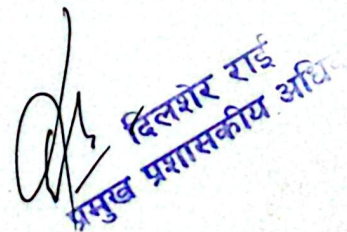 दिलशेर राई
प्रमुख प्रशासकीय अधि